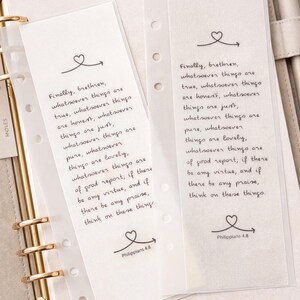 Finally, brethren,
whatsoever things are
true, whatsoever things
are honest, whatsoever
things are just,
whatsoever things are
pure, whatsoever
things are lovely,
whatsoever things are
of good report; if there
be any virtue, and if
there be any praise,
think on these things.
Philippians 4:8
Finally, brethren,
whatsoever things are
true, whatsoever things
are honest, whatsoever
things are just,
whatsoever things are
pure, whatsoever
things are lovely,
whatsoever things are
of good report; if there
be any virtue, and if
there be any praise,
think on these things.
Philippians 4:8